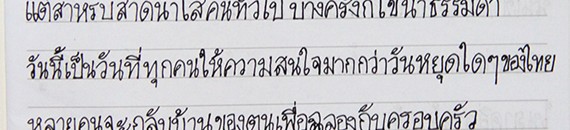 แต่สำหรับสาดน้ำใส่คนทั่วไป บางครั้งก็ใช้น้ำธรรมดา
วันนี้เป็นวันที่ทุกคนให้ความสนใจมากกว่าวันหยุดใดๆของไทย
หลายคนจะกลับบ้านของตนเพื่อฉลองกับครอบครัว